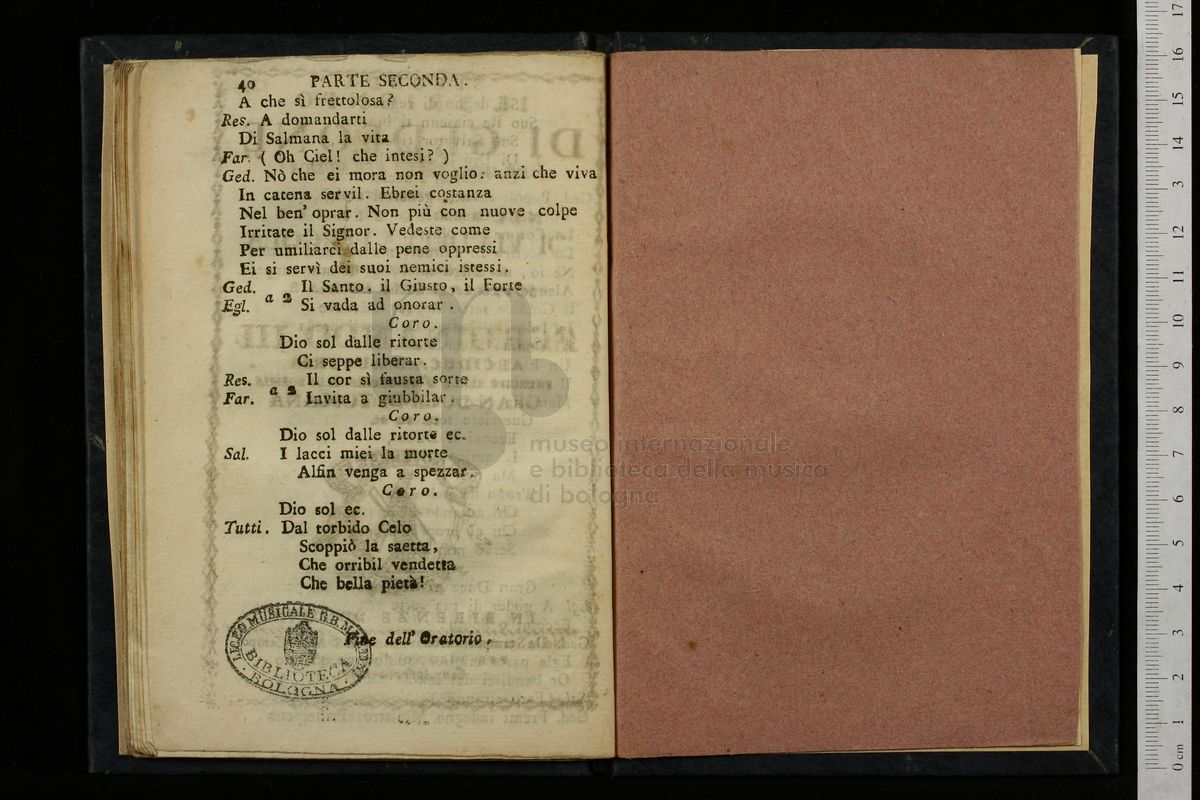 40 PARTE SECONDA.
A che sì frettolosa?
Res. A domandarti
Di Salmana la vita
Far. ( Oh Ciel! che intesi? )
Ged. Nò che ei mora non voglio: anzi che viva
In catena servil. Ebrei costanza
Nel ben' oprar. Non più con nuove colpe
Irritate il Signor. Vedeste come
Per umiliarci dalle pene oppressi
Ei si servì dei suoi nemici istessi.
Ged. Il Santo. il Giusto, il Forte
Egl. a 2 Si vada ad onorar.
Coro.
Dio sol dalle ritorte
Ci seppe liberar.
Res. Il cor sì fausta sorte
Far. a 2 Invita a giubbilar.
Coro.
Dio sol dalle ritorte ec.
Sal. I lacci miei la morte
Alfin venga a spezzar.
Coro.
Dio sol ec.
Tutti. Dal torbido Celo
Scoppiò la saetta,
Che orribil vendetta
Che bella pietà!
Fine dell' Oratorio.
LICEO MUSICALE G.B.
BIBLIOTECA
BOLOGNA
museo internazionale
e biblioteca della musica
di bologna
0 cm 1 2 3 4 5 6 7 8 9 10 11 12 13 14 15 16 17